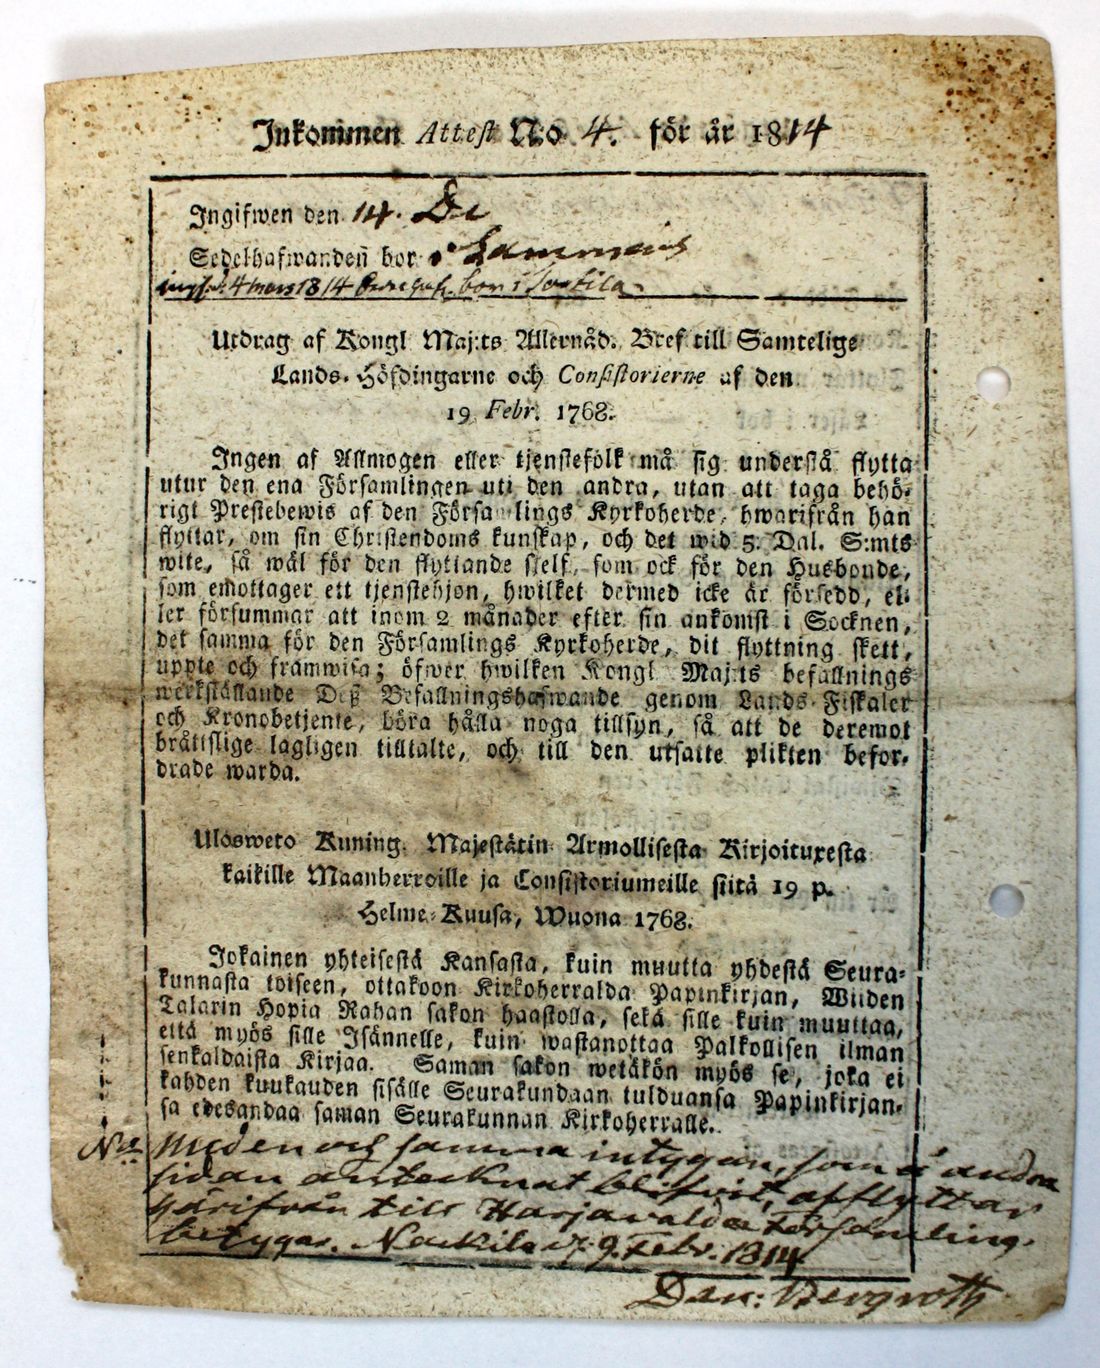 Inkommen Attest No 4. för år 1814
Ingifwen den 14. De
Sedelhafwanden bor i
4 mars 1814 bor i Sortila.
Utdrag af Kongl Maj:ts Allernåd. Bref till Samtelige
Lands-Höfdingarne och Consistorierne af den
19 Febr. 1768.
Ingen af Allmogen eller tjenstefolk må sig understå flytta
utur den ena Församlingen uti den andra, utan att taga behö-
rigt Prestebewis af den Församlings Kyrkoherde, hwarifrån han
flyttar, om sin Christendoms kunskap, och det wid 5. Dal. S:mts
wite, så wäl för den flyttande sjelf, som ock för den Husbonde,
som emottager ett tjenstehjon, hwilket dermed icke är försedd, el-
ler försummar att inom 2 månader efter sin ankomst i Socknen,
det samma för den Församlings Kyrkoherde, dit flyttning skett,
uppte och framwisa; öfwer hwilken Kongl Maj:ts befallnings
werkställande Deß Befallningshafwande genom Lands-Fiskaler
och Kronobetjente, böra hålla noga tillsyn, så att de deremot
bråttslige lagligen tilltalte, och till den utsatte plikten befor-
drade warda.
Ulosweto Kuning. Majestätin Armollisesta Kirjoituxesta
kaikille Maanherroille ja Consistoriumeille siitä 19 p.
Helme-Kuusa, Wuona 1768.
Jokainen yhteisestä Kansasta, kuin muutta yhdestä Seura-
kunnasta toiseen, ottakoon Kirkoherralda Papinkirjan, Wiiden
Talarin Hopia Rahan sakon haastolla, sekä sille kuin muuttaa,
että myös sille Isännelle, kuin wastanottaa Palkollisen ilman
senkaldaista Kirjaa. Saman sakon wetäkön myös se, joka ei
kahden kuukauden sisälle Seurakundaan tulduansa Papinkirjan-
sa edesandaa saman Seurakunnan Kirkoherralle.
Meden och samma intygan, som å andra
sidan antecknat blifvit, afflyttar
härifrån till Harjavalda Församling.
betygar. Nackila d. 9. Febr. 1814
Dan: Bergroth